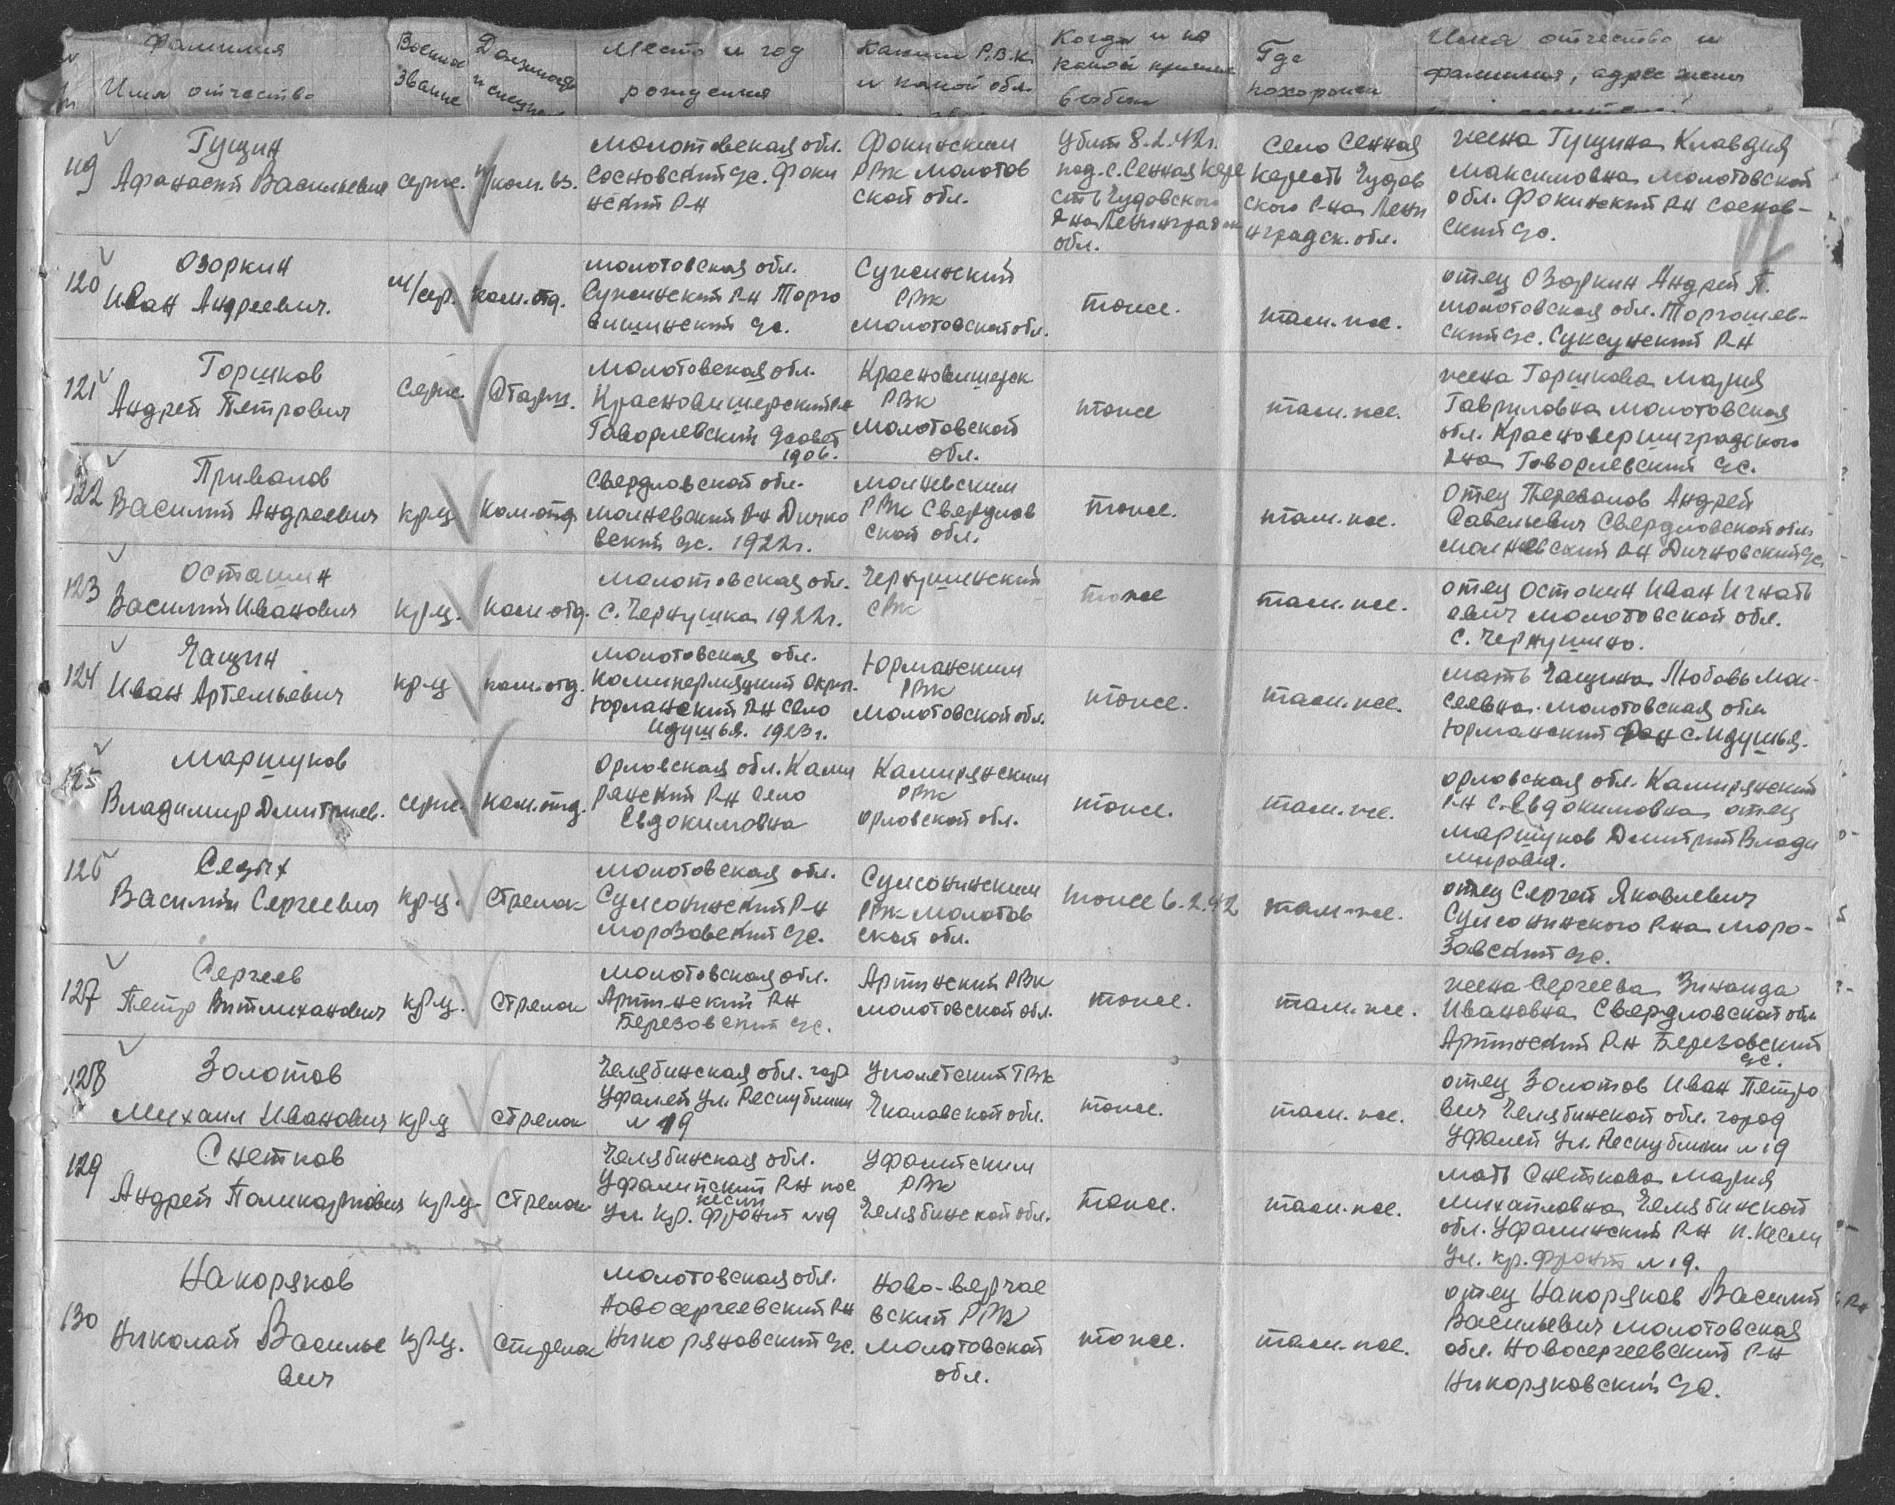 Фамилия
Имя отчество
Военное звание
Место и год рождения
Каким Р.В.К. и какой обл.
Когда и по какой причине выбыл
Где похоронен
Имя отчество и фамилия, адрес жены
119
Гущин
Афанасий Васильевич
серж.
п/ком. вз.
Молотовская обл.
Сосновский с/с. Фоки
нский р-н
Фокинским
РВК Молотов
ской обл.
Убит 8.2.42г.
под. с. Сенная Кере
сть Чудовского
р-на Ленинград
обл.
Село Сенная
Кересть Чудов
ского р-на Лени
нградск. обл.
жена Гущина Клавдия
Максимовна Молотовской
обл. Фокинский р-н Соснов-
ский с/с.
120
Озоркин
Иван Андреевич.
м/сер.
ком. отд.
Молотовская обл.
Суксинский р-н Торго
вишинский с/с.
Суксинский
РВК
Молотовской обл.
тоже.
там-же.
отец Озоркин Андрей П.
Молотовская обл. Торгошев-
ский с/с. Суксунский р-н
121
Горшков
Андрей Петрович
Серж.
Молотовская обл.
Красновишерский р-н
Говорлевский с/совет
1906.
Красновишерск
РВК
Молотовской
обл.
тоже
там-же.
жена Горшкова Мария
Гавриловна Молотовская
обл. Красноверишградского
р-на Говорлевский с/с.
122
Привалов
Василий Андреевич
кр-ц
Ком-отд
Свердловской обл.
Манчевский р-н Дичко
вский с/с. 1922г.
РВК Свердлов
ской обл.
тоже.
там-же.
Отец Перевалов Андрей
Савельевич Свердловской обл.
р-н Дичновский с/с
123
Осташин
Василий Иванович
кр-ц.
ком-отд.
Молотовская обл.
с. Чернушка 1922г.
Чернушинский
РВК
тоже
там-же.
отец Остокин Иван Игнать
евич Молотовской обл.
с. Чернушино.
124
Чащин
Иван Артемьевич
кр-ц
ком-отд.
Молотовская обл.
Комипермяцкий округ.
Юрлинский р-н село
Идушья. 1923г.
Юрманским
РВК
Молотовской обл.
тоже.
там-же.
мать Чащина Любовь Мои-
сеевна. Молотовская обл.
Юрманский с. Идушья.
125
Маршуков
Владимир Дмитриев.
серж.
ком. отд.
Орловская обл. Ками
рянский р-н село
Евдокимовна
Камирянским
РВК
Орловской обл.
тоже.
там-же.
Орловская обл. Камирянский
р-н с. Евдокимовна отец
Маршуков Дмитрий Влади
мирович.
126
Седых
Василий Сергеевич
кр-ц.
Стрелок
Молотовская обл.
Суксонинский р-н
Морозовский с/с.
Суксонинским
РВК Молотов
ской обл.
тоже 6.2.42
там-же.
отец Сергей Яковлевич
Суксонинского р-на Моро-
зовский с/с.
127
Сергеев
Петр
кр-ц.
стрелок
Молотовская обл.
Артинский р-н
Березовский с/с.
Артинский РВК
Молотовской обл.
тоже.
там-же.
жена Сергеева Зинаида
Ивановна Свердловской обл
Артинский р-н Березовский
с/с.
128
Золотов
Михаил Иванович
кр-ц
стрелок
Челябинская обл. гор
Уфалей ул. Республики
№ 19
Чкаловской обл.
тоже.
там-же.
отец Золотов Иван Петро
вич Челябинской обл. город
Уфалей ул. Республики №19
129
Снетков
Андрей Поликарпович
кр-ц
стрелок
Челябинская обл.
Уфалинский р-н пос
Кесли
ул. Кр. Фронт №19
Уфалитским
РВК
Челябинской обл.
тоже.
там-же.
мать Снеткова Мария
Михайловна Челябинской
обл. Уфалинский р-н п. Кесли
ул. Кр. Фронт №19.
130
Накоряков
Николай Василье
вич
кр-ц.
стрелок
Молотовская обл.
Новосергеевский р-н
Никоряновский с/с.
Ново-верчае
вский РВК
Молотовской
обл.
тоже.
там-же.
отец Накоряков Василий
Васильевич Молотовская
обл. Новосергеевский р-н
Никоряковский с/с.